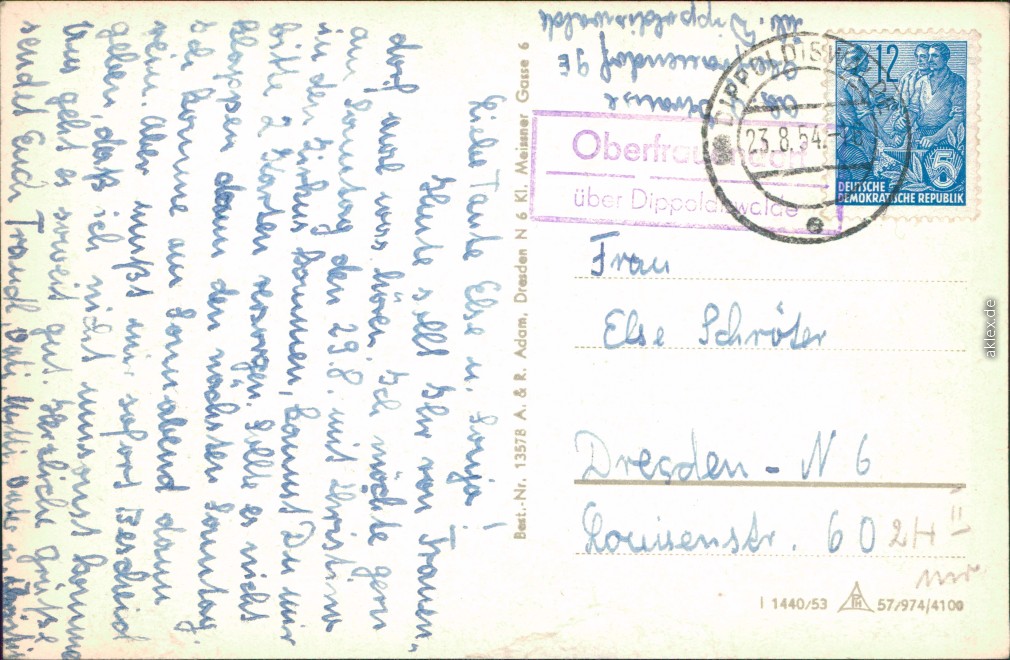 Liebe Tante Else u. Sonja!
Heute sollt Ihr von Frauen-
dorf mal was hören. Ich möchte gern
am Sonntag den 29.8. mit Christina
in den Zirkus kommen, kannst Du mir
bitte 2 Karten besorgen. Sollte es nicht
kloppen dann den nächsten Sonntag.
Ich komme am Sonnabend dann
rein. Aber mußt mir sofort Bescheid
geben, daß ich nicht umsonst komme
Uns geht es soweit gut. Herzliche Grüße
sendet Euch Traudl,
Best.-Nr. 13578 A. & R. Adam, Dresden N 6 Kl. Meissner Gasse 6
Abs.
Oberfrauendorf 9E
ü. Dippoldiswalde
Oberfrauendorf
über Dippoldiswalde
DIPPOLDISWALDE
23.8.54.
12
5
DEUTSCHE
DEMOKRATISCHE REPUBLIK
Frau
Else Schröter
Dresden - N 6
Louisenstr. 60 2H II
I 1440/53 57/974/4100
aklex.de